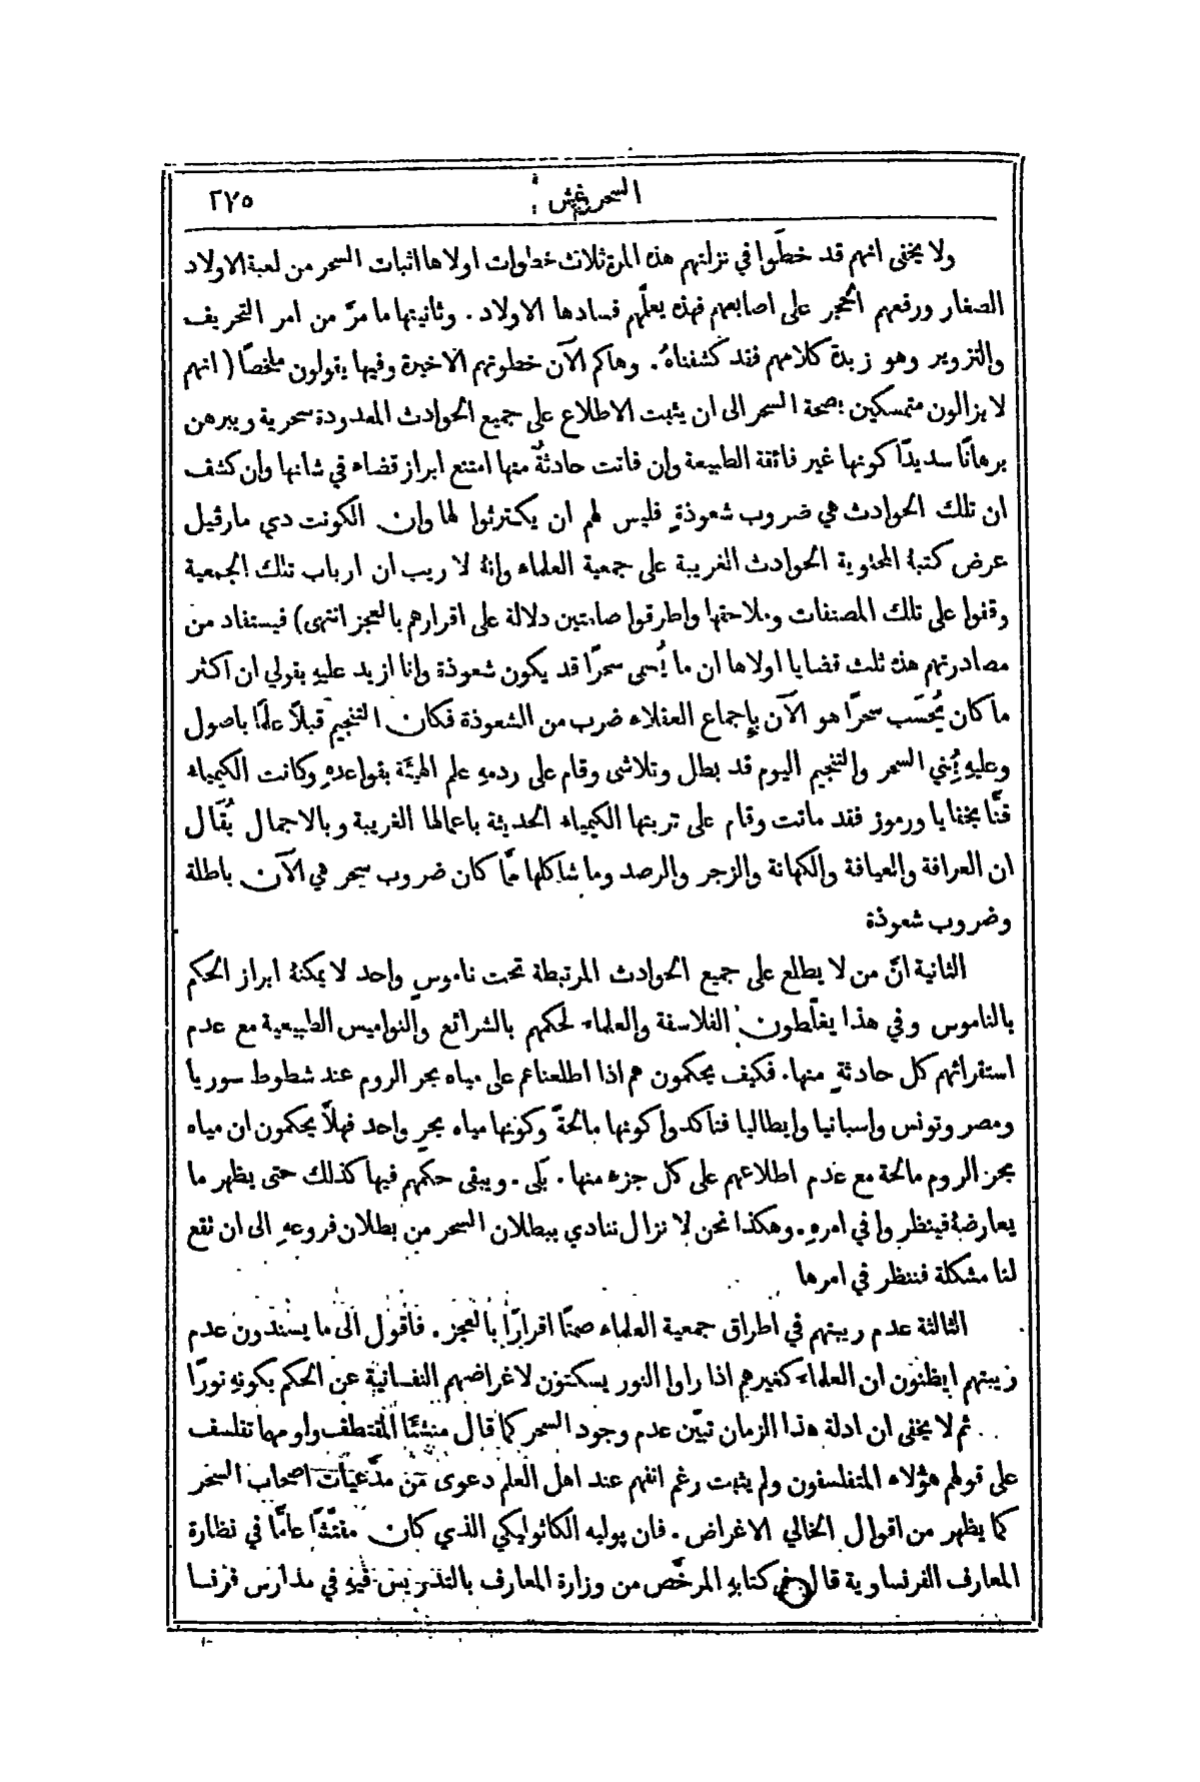 السحر غش
٢٧٥
ولا يخفى انهم قد خطَوا في نزلتهم هذه المرة ثلاث خطوات اولاها اثبات السحر من لعبة الاولاد
الصغار ورفعهم الحجر على اصابعهم فهذه يعلّمهم فسادها الاولاد . وثانيتها ما مرّ من امر التحريف
والتزوير وهو زبدة كلامهم فقد كشفناهُ . وهاكم الآن خطوتهم الاخيرة وفيها يقولون ملخصًا ( انهم
لا يزالون متمسكين بصحة السحر الى ان يثبت الاطلاع على جميع الحوادث المعدودة سحرية ويبرهن
برهانًا سديدًا كونها غير فائقة الطبيعة وان فاتت حادثةٌ منها امتنع ابراز قضاء في شانها وان كشف
ان تلك الحوادث هي ضروب شعوذةٍ فليس لهم ان يكترثوا لها وان الكونت دي مارڤيل
عرض كتبهُ المحتوية الحوادث الغريبة على جمعية العلماء وانهُ لا ريب ان ارباب تلك الجمعية
وقفوا على تلك المصنفات وملاحقها واطرقوا صامتين دلالة على اقرارهم بالعجز انتهى ) فيستفاد من
مصادرتهم هذه ثلث قضايا اولاها ان ما يُسمى سحرًا قد يكون شعوذة وانا ازيد عليهِ بقولي ان اكثر
ما كان يُحسَب سحرًا هو الآن بإجماع العقلاء ضرب من الشعوذة فكان التنجيم قبلاً علمًا باصول
وعليهِ بُني السحر والتنجيم اليوم قد بطل وتلاشى وقام على ردمهِ علم الهيئة بقواعدهِ وكانت الكيمياء
فنًّا بخفايا ورموز فقد ماتت وقام على تربتها الكيمياء الحديثة باعمالها الغريبة وبالاجمال يُقَال
ان العرافة والعيافة والكهانة والزجر والرصد وما شاكلها ممّا كان ضروب سحر هي الآن باطلة
وضروب شعوذة
الثانية انّ من لا يطلع على جميع الحوادث المرتبطة تحت ناموسٍ واحد لا يمكنهُ ابراز الحكم
بالناموس وفي هذا يغلّطون الفلاسفة والعلماء لحكمهم بالشرائع والنواميس الطبيعية مع عدم
استقرائهم كل حادثةٍ منها . فكيف يحكمون هم اذا اطلعناهم على مياه بحر الروم عند شطوط سوريا
ومصر وتونس واسبانيا وايطاليا فتاكدوا كونها مالحةً وكونها مياه بحرٍ واحد فهلاَّ يحكمون ان مياه
بحر الروم مالحة مع عدم اطلاعهم على كل جزء منها . بَلَى . ويبقى حكمهم فيها كذلك حتى يظهر ما
يعارضهُ فينظروا في امرهِ . وهكذا نحن لا نزال ننادي ببطلان السحر من بطلان فروعهِ الى ان تقع
لنا مشكلة فننظر في امرها
الثالثة عدم ريبتهم في اطراق جمعية العلماء صمتًا اقرارًا بالعجز . فاقول الى ما يسندون عدم
ريبتهم ايظنون ان العلماء كغيرهم اذا راوا النور يسكتون لاغراضهم النفسانية عن الحكم بكونهِ نورًا
ثم لا يخفى ان ادلة هذا الزمان تبيّن عدم وجود السحر كما قال منشئَا المقتطف ولو مهما تفلسف
على قولهم هؤلاء المتفلسفون ولم يثبت رغم انفهم عند اهل العلم دعوى من مدّعيَات اصحاب السحر
كما يظهر من اقوال الخالي الاغراض . فان بوليه الكاثوليكي الذي كان مفتشًا عامًّا في نظارة
المعارف الفرنساوية قال في كتابهِ المرخّص من وزارة المعارف بالتدريس فيهِ في مدارس فرنسا